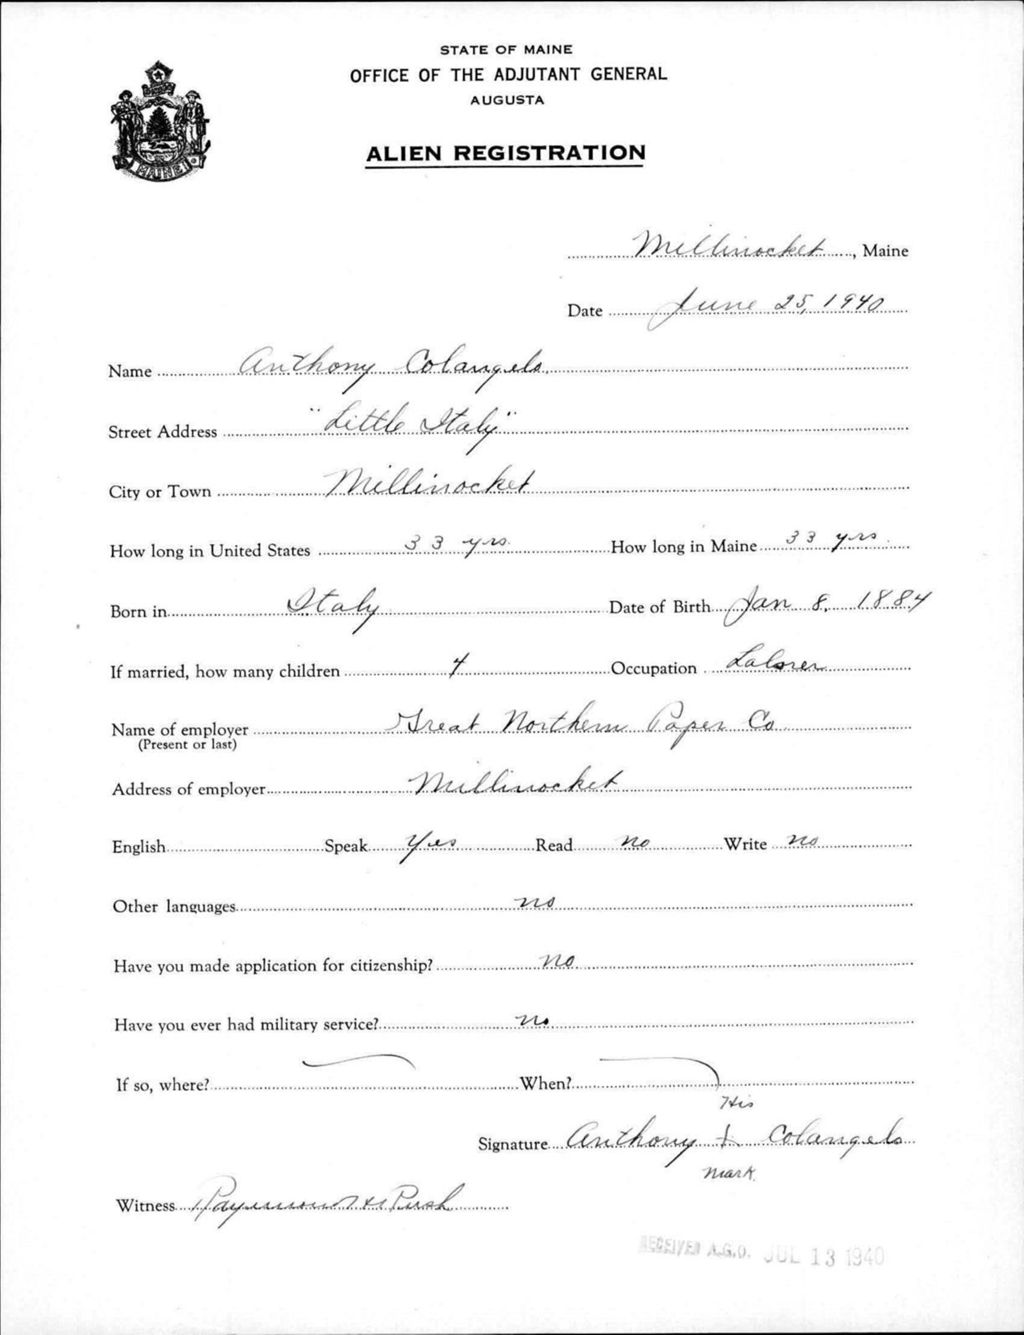 STATE OF MAINE
OFFICE OF THE ADJUTANT GENERAL
AUGUSTA
ALIEN REGISTRATION
MAINE
Millinocket, Maine
Date June 25, 1940
Name Anthony Colangelo
Street Address "Little Italy"
City or Town Millinocket
How long in United States 33 yrs. How long in Maine 33 yrs.
Born in Italy Date of Birth Jan 8, 1884
If married, how many children 4 Occupation Laborer
Name of employer Great Northern Paper Co
(Present or last)
Address of employer Millinocket
English Speak Yes Read no Write no
Other languages no
Have you made application for citizenship? no
Have you ever had military service? no
If so, where? When?
His
Signature Anthony X Colangelo
mark.
Witness Raymond H Rush
RECEIVED A.G.O. JUL 13 1940